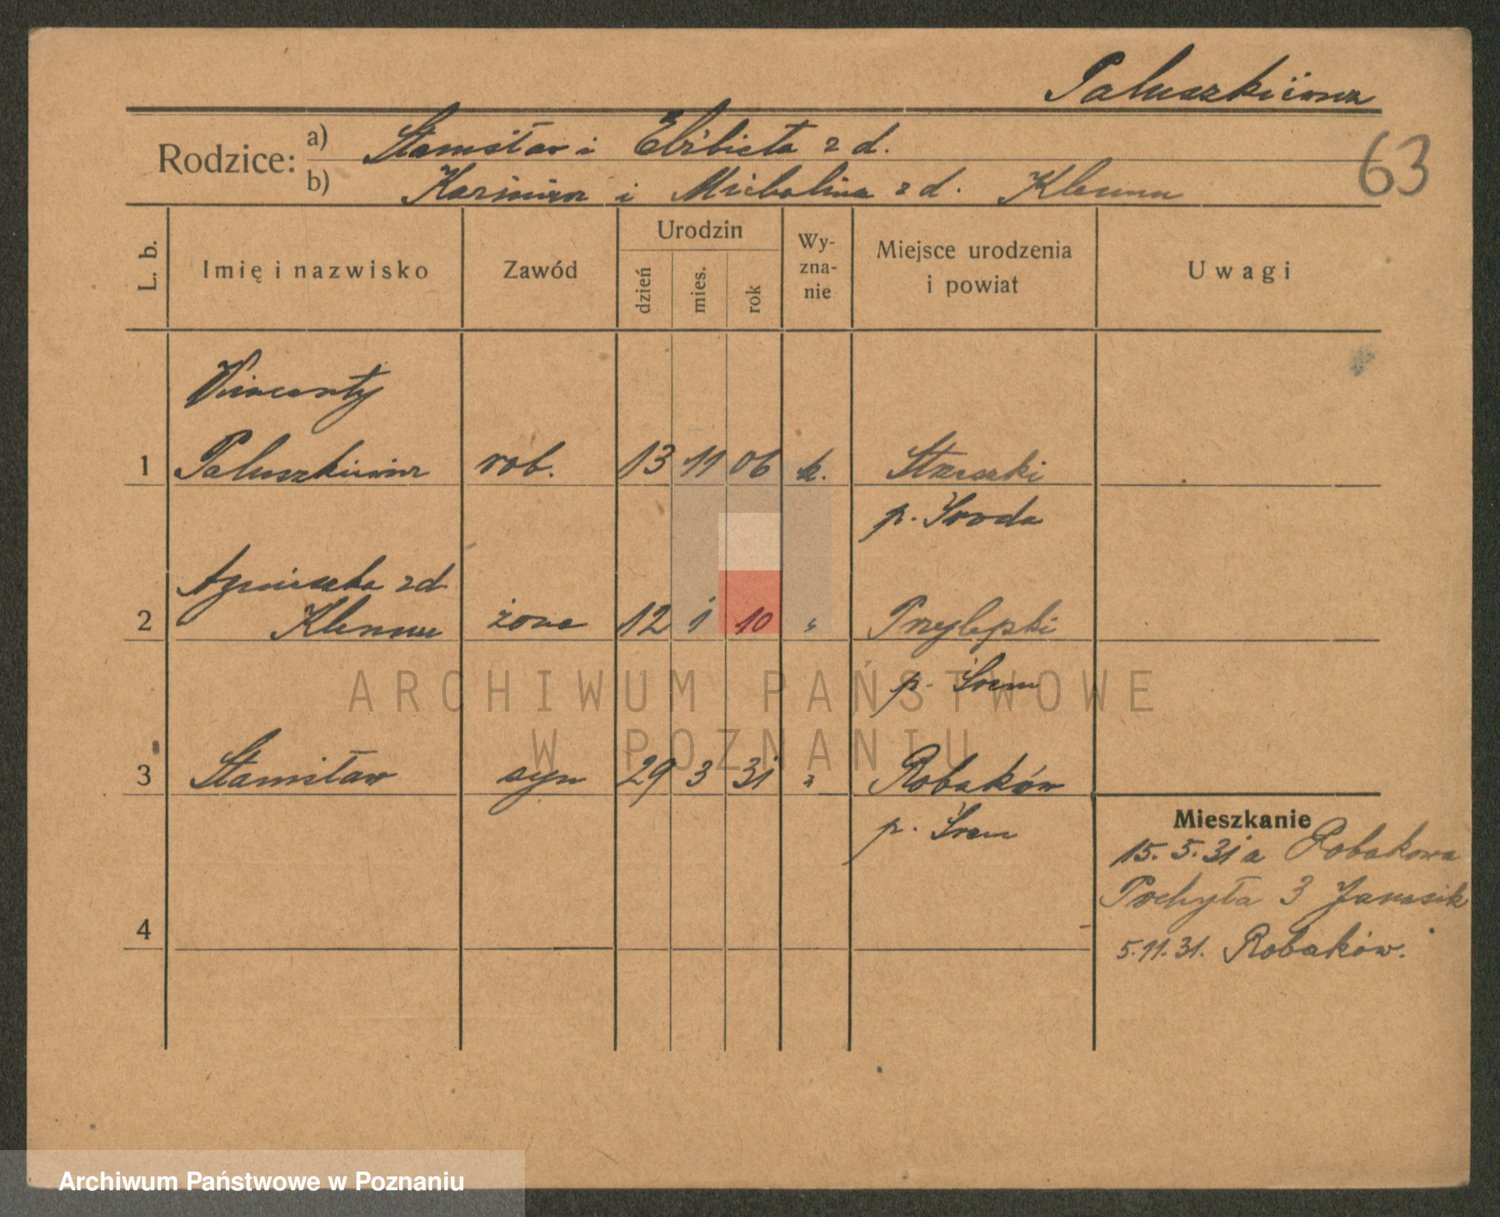 Paluszkiewicz
63
Rodzice:
a) Stanisław i Elżbieta z d.
b) Kazimierz i Michalina z d. Klemm
L. b.
Imię i nazwisko
Zawód
Urodzin
dzień
mies.
rok
Wy-
zna-
nie
Miejsce urodzenia
i powiat
Uwagi
Wincenty
1 Paluszkiewicz rob. 13 11 06 k.
p. Środa
Agnieszka zd
2 żona 12 1 10 " Przylepki
p. Śrem
3 Stanisław syn 29 3 31 " Robaków
p. Śrem
4
Mieszkanie
15. 5. 31 a Robakowa
Pochyła 3 Janasik
5.11.31. Robaków.
ARCHIWUM PAŃSTWOWE
W POZNANIU
Archiwum Państwowe w Poznaniu